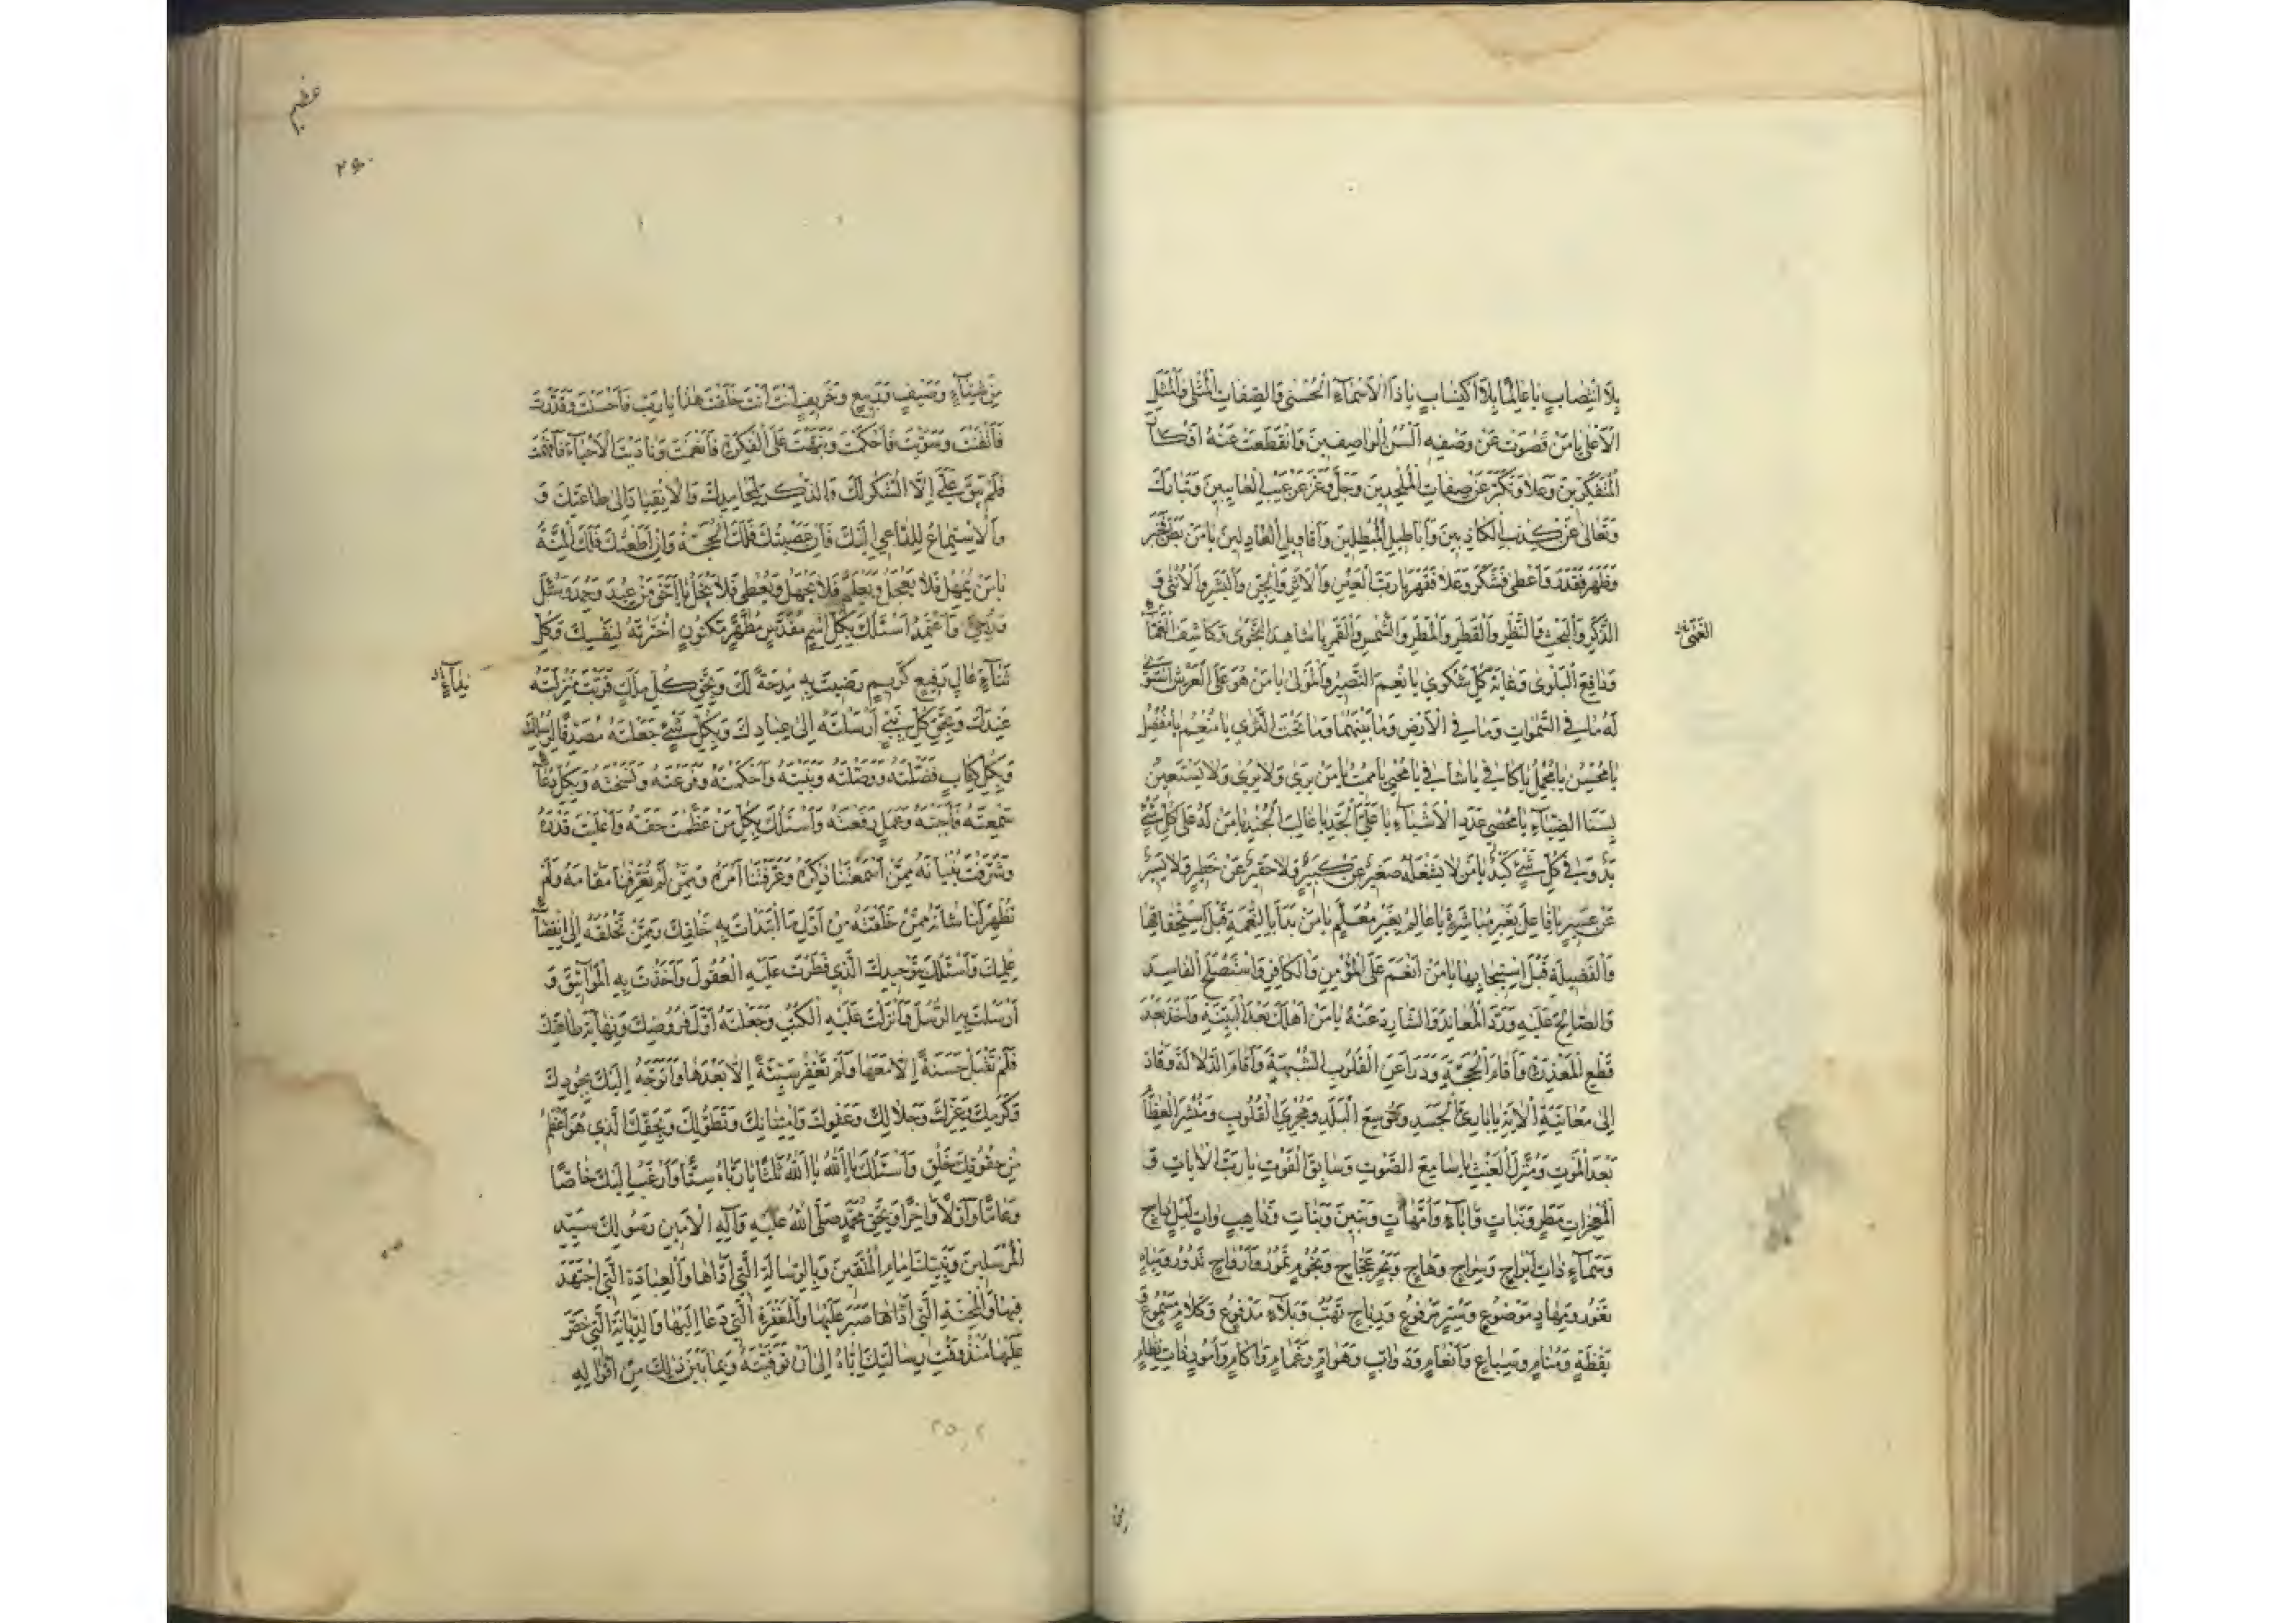 بِلَا انْتِصَابٍ يَا عَالِمًا بِلَا اكْتِسَابٍ يَا ذَا الْأَسْمَاءِ الْحُسْنَى وَالصِّفَاتِ الْمُثْلَى وَالْمَثَلِ
الْأَعْلَى يَا مَنْ قَصُرَتْ عَنْ وَصْفِهِ أَلْسُنُ الْوَاصِفِينَ وَانْقَطَعَتْ عَنْهُ أَفْكَارُ
الْمُتَفَكِّرِينَ وَعَلَا وَتَكَبَّرَ عَنْ صِفَاتِ الْمُلْحِدِينَ وَجَلَّ وَعَزَّ عَنْ عَيْبِ الْعَايِبِينَ وَتَبَارَكَ
وَتَعَالَى عَنْ كِذْبِ الْكَاذِبِينَ وَأَبَاطِيلِ الْمُبْطِلِينَ وَأَقَاوِيلِ الْعَادِلِينَ يَا مَنْ بَطَنَ فَخَبَرَ
وَظَهَرَ فَقَدَرَ وَأَعْطَى فَشَكَرَ وَعَلَا فَقَهَرَ يَا رَبَّ الْعَيْنِ وَالْأَثَرِ وَالْجِنِّ وَالْبَشَرِ وَالْأُنْثَى وَ
الذَّكَرِ وَالْبَحْثِ وَالنَّظَرِ وَالْقَطْرِ وَالْمَطَرِ وَالشَّمْسِ وَالْقَمَرِ يَا شَاهِدَ النَّجْوَى وَكَاشِفَ الْغَمَّاءِ
الْغُمَّى
وَدَافِعَ الْبَلْوَى وَغَايَةَ كُلِّ شَكْوَى يَا نِعْمَ النَّصِيرُ وَالْمَوْلَى يَا مَنْ هُوَ عَلَى الْعَرْشِ اسْتَوَى
لَهُ مَا فِي السَّمَوَاتِ وَمَا فِي الْأَرْضِ وَمَا بَيْنَهُمَا وَمَا تَحْتَ الثَّرَى يَا مُنْعِمُ يَا مُفْضِلُ
يَا مُحْسِنُ يَا مُجْمِلُ يَا كَافِي يَا شَافِي يَا مُحْيِي يَا مُمِيتُ يَا مَنْ يَرَى وَلَا يُرَى وَلَا يَسْتَعِينُ
بِسَنَا الضِّيَاءِ يَا مُحْصِيَ عَدَدِ الْأَشْيَاءِ يَا عَلِيَّ الْجَدِّ يَا غَالِبَ الْجُنْدِ يَا مَنْ لَهُ عَلَى كُلِّ شَيْءٍ
يَدٌ وَفِي كُلِّ شَيْءٍ كَيْدٌ يَا مَنْ لَا يَشْغَلُهُ صَغِيرٌ عَنْ كَبِيرٍ وَلَا حَقِيرٌ عَنْ خَطِيرٍ وَلَا يَسِيرٌ
عَنْ عَسِيرٍ يَا فَاعِلَ بِغَيْرِ مُبَاشَرَةٍ يَا عَالِمُ بِغَيْرِ مُعَلِّمٍ يَا مَنْ بَدَأَ بِالنِّعْمَةِ قَبْلَ اسْتِحْقَاقِهَا
وَالْفَضِيلَةِ قَبْلَ اسْتِيجَابِهَا يَا مَنْ أَنْعَمَ عَلَى الْمُؤْمِنِ وَالْكَافِرِ وَاسْتَصْلَحَ الْفَاسِدَ
وَالصَّالِحَ عَلَيْهِ وَرَدَّ الْمُعَانِدَ وَالشَّارِدَ عَنْهُ يَا مَنْ أَهْلَكَ بَعْدَ الْبَيِّنَةِ وَأَخَذَ بَعْدَ
قَطْعِ الْمَعْذِرَةِ وَأَقَامَ الْحُجَّةَ وَدَرَأَ عَنِ الْقُلُوبِ الشُّبْهَةَ وَأَقَامَ الدَّلَالَةَ وَقَادَ
إِلَى مُعَايَنَةِ الْآيَةِ يَا بَارِئَ الْجَسَدِ وَمُوسِعَ الْبَلَدِ وَمُجْرِيَ الْقُلُوبِ وَمُنْشِرَ الْعِظَامِ
بَعْدَ الْمَوْتِ وَمُنْزِلَ الْغَيْثِ يَا سَامِعَ الصَّوْتِ وَسَابِقَ الْفَوْتِ يَا رَبَّ الْآيَاتِ وَ
الْمُعْجِزَاتِ مَطَرٍ وَنَبَاتٍ وَآبَاءٍ وَأُمَّهَاتٍ وَبَنِينَ وَبَنَاتٍ وَذَاهِبٍ وَآتٍ لَيْلٍ دَاجٍ
وَسَمَاءٍ ذَاتِ أَبْرَاجٍ وَسِرَاجٍ وَهَّاجٍ وَبَحْرٍ عَجَّاجٍ وَنُجُومٍ تَمُورُ وَأَرْوَاحٍ تَدُورُ وَمِيَاهٍ
تَغُورُ وَمِهَادٍ مَوْضُوعٍ وَسِتْرٍ مَرْفُوعٍ وَرِيَاحٍ تَهُبُّ وَبَلَاءٍ مَدْفُوعٍ وَكَلَامٍ مَسْمُوعٍ وَ
يَقْظَةٍ وَمَنَامٍ وَسِبَاعٍ وَأَنْعَامٍ وَدَوَابَّ وَهَوَامَّ وَغَمَامٍ وَآكَامٍ وَأُمُورٍ ذَاتِ نِظَامٍ
عظيم
مِنْ شِتَاءٍ وَصَيْفٍ وَرَبِيعٍ وَخَرِيفٍ أَنْتَ أَنْتَ خَلَقْتَ هَذَا يَا رَبِّ فَأَحْسَنْتَ وَقَدَّرْتَ
فَأَتْقَنْتَ وَسَوَّيْتَ فَأَحْكَمْتَ وَنَبَّهْتَ عَلَى الْفِكْرَةِ فَأَنْعَمْتَ وَنَادَيْتَ الْأَحْيَاءَ فَأَفْهَمْتَ
فَلَمْ يَبْقَ عَلَيَّ إِلَّا الشُّكْرُ لَكَ وَالذِّكْرُ لِمَحَامِدِكَ وَالْاِنْقِيَادُ إِلَى طَاعَتِكَ وَ
وَالْاِسْتِمَاعُ لِلدَّاعِي إِلَيْكَ فَإِنْ عَصَيْتُكَ فَلَكَ الْحُجَّةُ وَإِنْ أَطَعْتُكَ فَلَكَ الْمِنَّةُ
يَا مَنْ يُمْهِلُ فَلَا يَعْجَلُ وَيَعْلَمُ فَلَا يَجْهَلُ وَيُعْطِي فَلَا يَبْخَلُ يَا أَحَقَّ مَنْ عُبِدَ وَحُمِدَ وَسُئِلَ
وَرُجِيَ وَاعْتُمِدَ أَسْئَلُكَ بِكُلِّ اسْمٍ مُقَدَّسٍ مُطَهَّرٍ مَكْنُونٍ اخْتَرْتَهُ لِنَفْسِكَ وَكُلِّ
ثَنَاءٍ عَالٍ رَفِيعٍ كَرِيمٍ رَضِيتَ بِهِ مِدْحَةً لَكَ وَبِحَقِّ كُلِّ مَلَكٍ قَرُبَتْ مَنْزِلَتُهُ
عِنْدَكَ وَبِحَقِّ كُلِّ نَبِيٍّ أَرْسَلْتَهُ إِلَى عِبَادِكَ وَبِكُلِّ شَيْءٍ جَعَلْتَهُ مُصَدِّقًا لِرُسُلِكَ
وَبِكُلِّ كِتَابٍ فَصَّلْتَهُ وَوَصَلْتَهُ وَبَيَّنْتَهُ وَأَحْكَمْتَهُ وَشَرَعْتَهُ وَنَسَخْتَهُ وَبِكُلِّ دُعَاءٍ
سَمِعْتَهُ فَأَجَبْتَهُ وَعَمَلٍ رَفَعْتَهُ وَأَسْئَلُكَ بِكُلِّ مَنْ عَظَّمْتَ حَقَّهُ وَأَعْلَيْتَ قَدْرَهُ
وَشَرَّفْتَ بُنْيَانَهُ مِمَّنْ أَسْمَعْتَنَا ذِكْرَهُ وَعَرَّفْتَنَا أَمْرَهُ وَمِمَّنْ لَمْ تُعَرِّفْنَا مَقَامَهُ وَلَمْ
تُظْهِرْ لَنَا شَأْنَهُ مِمَّنْ خَلَقْتَهُ مِنْ أَوَّلِ مَا ابْتَدَأْتَ بِهِ خَلْقَكَ وَمِمَّنْ تَخْلُقُهُ إِلَى انْقِضَاءِ
عِلْمِكَ وَأَسْئَلُكَ بِتَوْحِيدِكَ الَّذِي فَطَرْتَ عَلَيْهِ الْعُقُولَ وَأَخَذْتَ بِهِ الْمَوَاثِيقَ وَ
أَرْسَلْتَ بِهِ الرُّسُلَ وَأَنْزَلْتَ عَلَيْهِ الْكُتُبَ وَجَعَلْتَهُ أَوَّلَ فُرُوضِكَ وَنِهَايَةَ طَاعَتِكَ
فَلَمْ تَقْبَلْ حَسَنَةً إِلَّا مَعَهَا وَلَمْ تَغْفِرْ سَيِّئَةً إِلَّا بَعْدَهَا وَأَتَوَجَّهُ إِلَيْكَ بِجُودِكَ
وَكَرَمِكَ وَعِزِّكَ وَجَلَالِكَ وَعَفْوِكَ وَامْتِنَانِكَ وَتَطَوُّلِكَ وَبِحَقِّكَ الَّذِي هُوَ أَعْظَمُ
مِنْ حُقُوقِ خَلْقِكَ وَأَسْئَلُكَ يَا اللَّهُ يَا اللَّهُ ثَلَثًا يَا رَبَّاهُ سِتًّا وَأَرْغَبُ إِلَيْكَ خَاصًّا
وَعَامًّا وَأَوَّلًا وَآخِرًا وَبِحَقِّ مُحَمَّدٍ صَلَّى اللَّهُ عَلَيْهِ وَآلِهِ الْأَمِينِ رَسُولِكَ سَيِّدِ
الْمُرْسَلِينَ وَنَبِيِّكَ إِمَامِ الْمُتَّقِينَ وَبِالرِّسَالَةِ الَّتِي أَدَّاهَا وَالْعِبَادَةِ الَّتِي اجْتَهَدَ
فِيهَا وَالْمِحْنَةِ الَّتِي صَبَرَ عَلَيْهَا وَالْمَغْفِرَةِ الَّتِي دَعَا إِلَيْهَا وَالدِّيَانَةِ الَّتِي حَضَّ
عَلَيْهَا مُنْذُ وَقْتِ رِسَالَتِكَ إِيَّاهُ إِلَى أَنْ تَوَفَّيْتَهُ وَبِمَا بَيْنَ ذَلِكَ مِنْ أَقْوَالِهِ